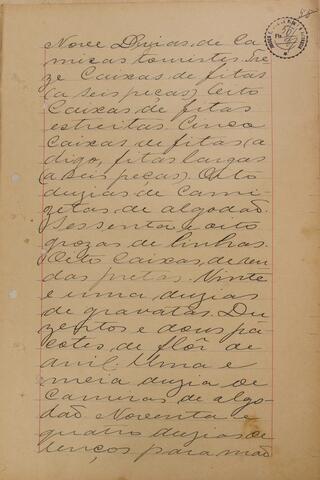 Nove Duzias de ca
misas touristes. Tre
ze Caixas de fitas
(a seis peças). Oito
Caixas de fitas
estreitas. Cinco
Caixas de fitas (a
digo, fitas largas
(a seis peças). Oito
duzias de cami
zetas de algodão.
Sessenta e oito
grozas de linhas.
Oito Caixas de ren
das pretas. Vinte
e uma duzias
de gravatas. Du
zentos e dous pa
cotes de flôr de
anil. Uma e
meia duzia de
de algo
dão Noventa e
quatro duzias de
lenços para mão